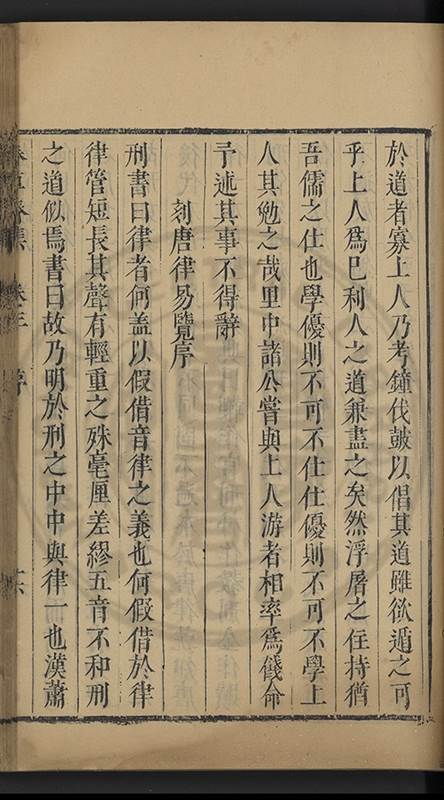 於道者寡上人乃考鐘伐鼓以倡其道雖欲遁之可
乎上人爲已利人之道兼盡之矣然浮屠之住持猶
吾儒之仕也學優則不可不仕仕優則不可不學上
人其勉之哉里中諸公嘗與上人游者相率爲餞命
予述其事不得辭
刻唐律易覽序
刑書曰律者何盖以假借音律之義也何假借於律
律管短長其聲有輕重之殊毫厘差繆五音不和刑
之道似焉書曰故乃明於刑之中中與律一也漢蕭
卷三 序